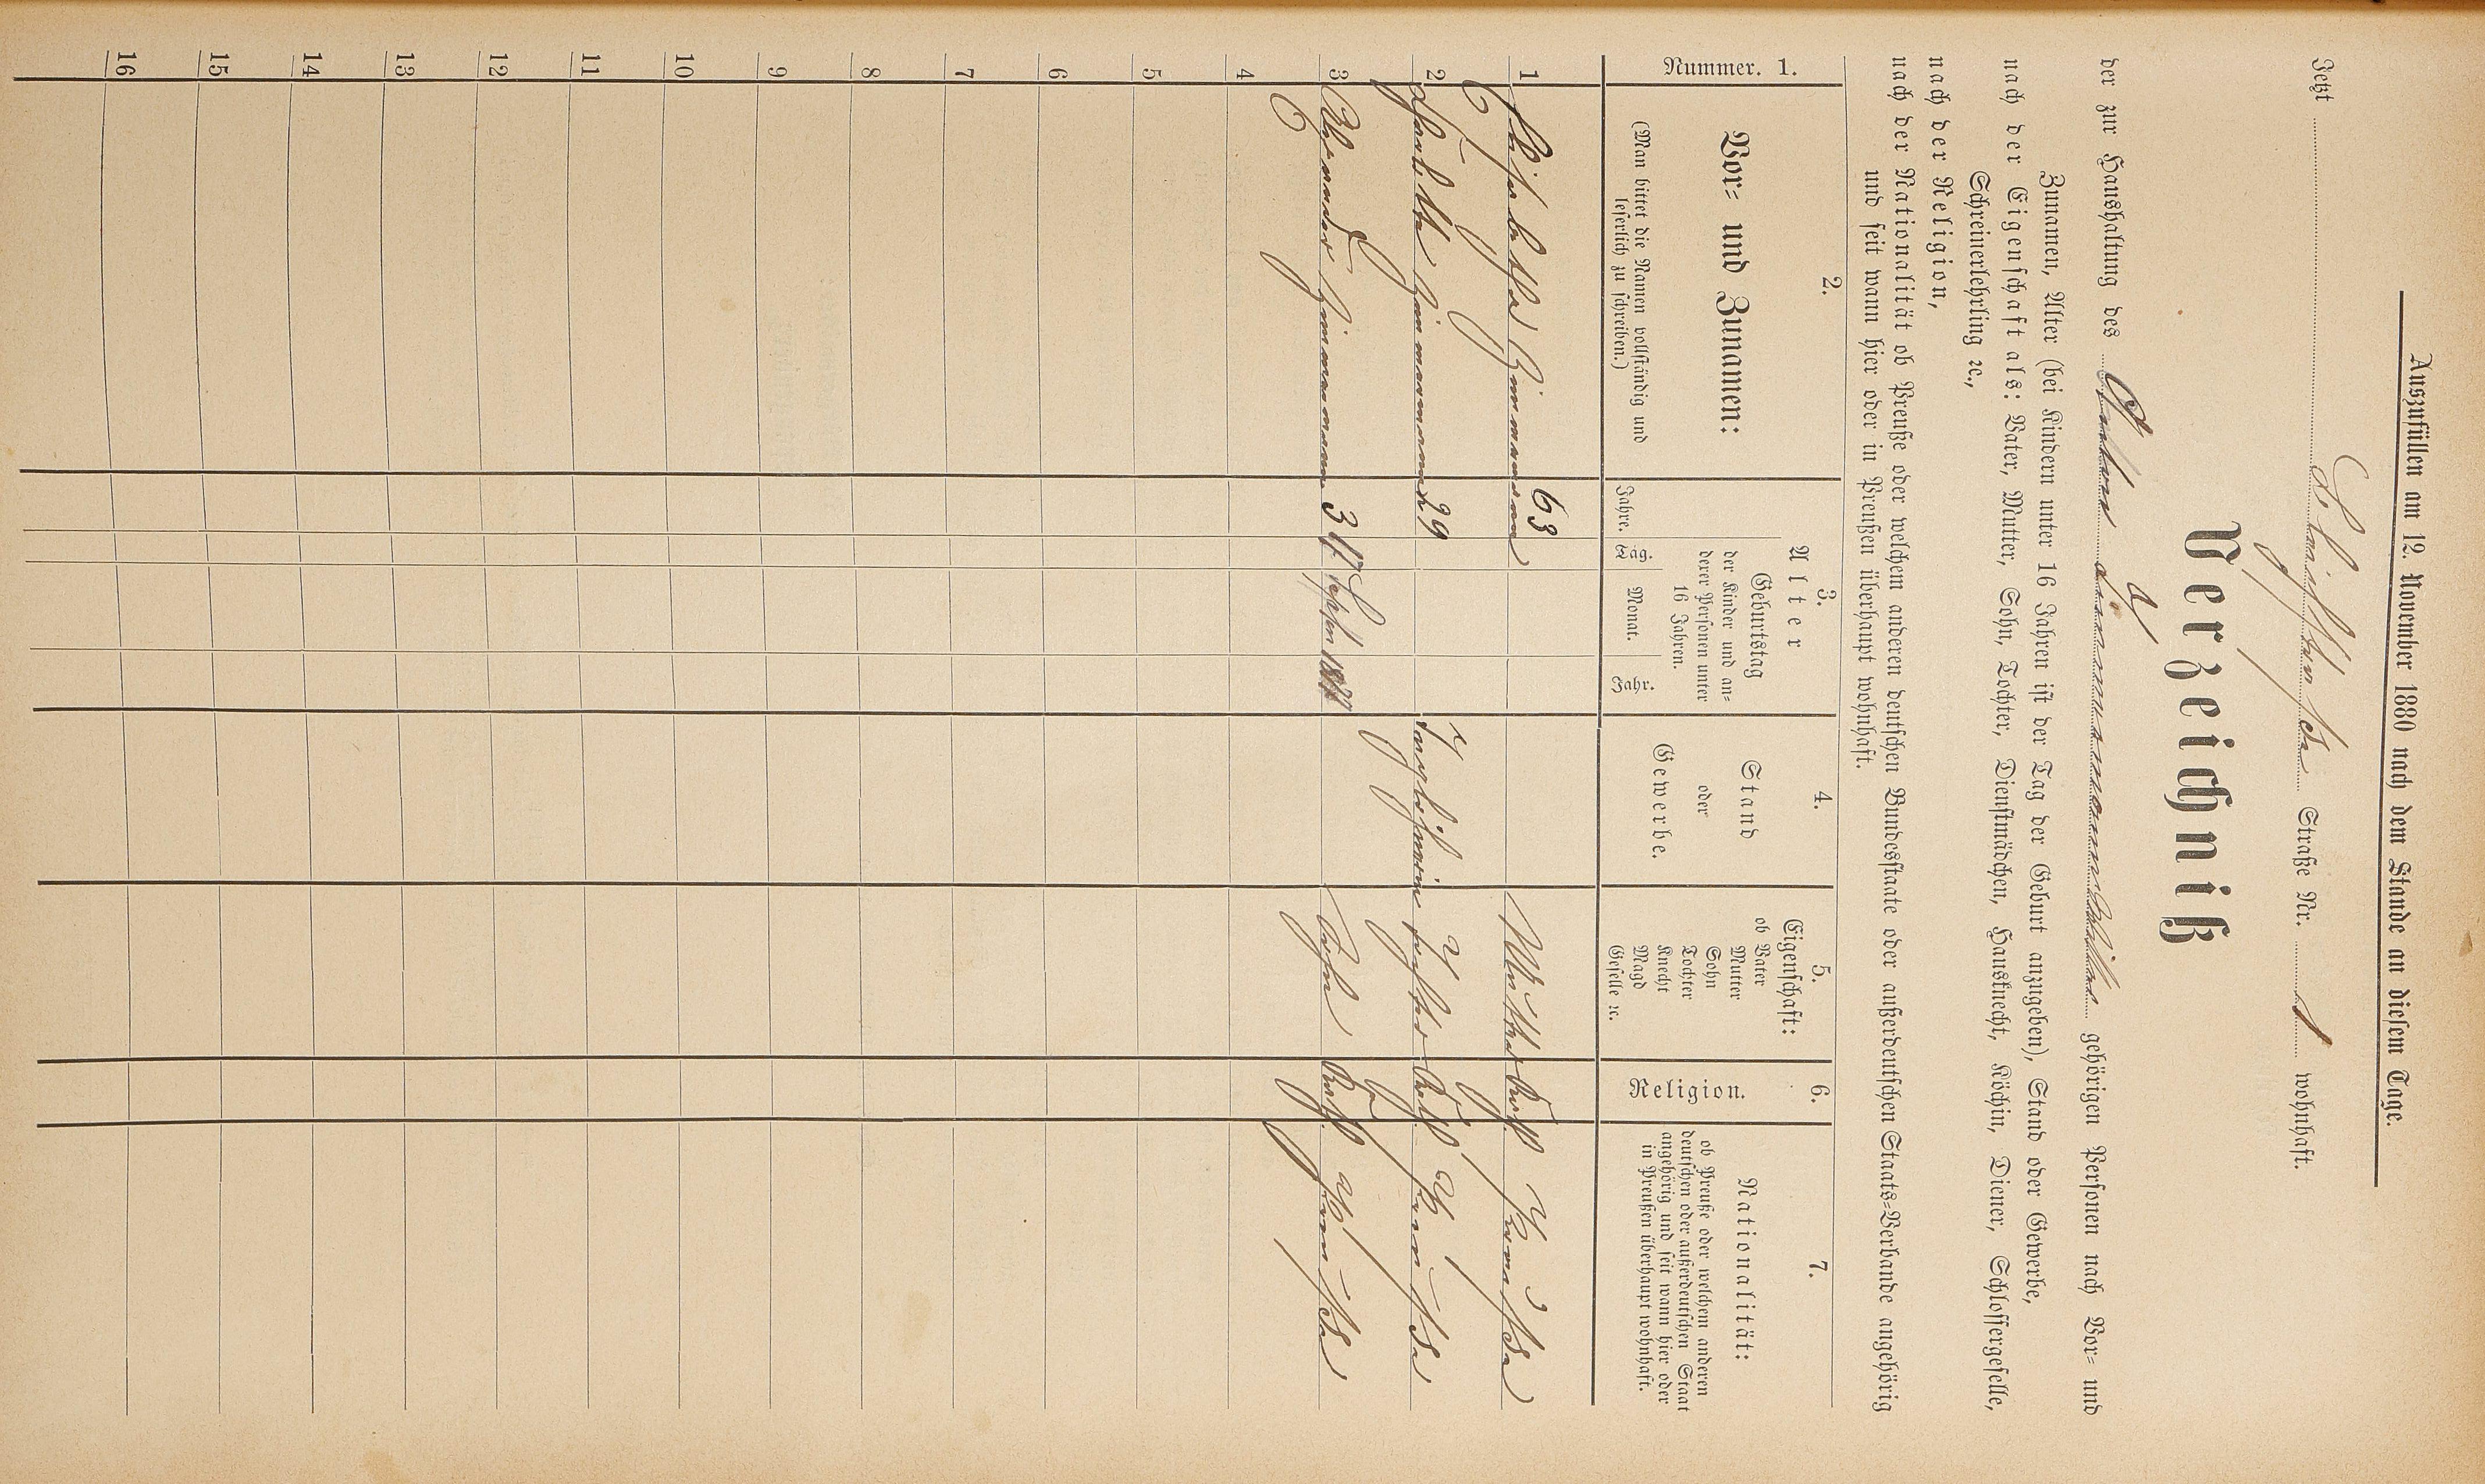 Auszufüllen am 12. November 1880 nach dem Stande an diesem Tage.
Jetzt Straße Nr. 1 wohnhaft.
Verzeichniß
der zur Haushaltung des gehörigen Personen nach Vor= und
Zunamen, Alter (bei Kindern unter 16 Jahren ist der Tag der Geburt anzugeben), Stand oder Gewerbe,
nach der Eigenschaft als: Vater, Mutter, Sohn, Tochter, Dienstmädchen, Hausknecht, Köchin, Diener, Schlossergeselle,
Schreinerlehrling ꝛc.,
nach der Religion,
nach der Nationalität ob Preuße oder welchem anderen deutschen Bundesstaate oder außerdeutschen Staats=Verbande angehörig
und seit wann hier oder in Preußen überhaupt wohnhaft.
Nummer. 1.
2.
Vor= und Zunamen:
(Man bittet die Namen vollständig und
leserlich zu schreiben.)
3.
Alter
Jahre.
Geburtstag
der Kinder und an=
derer Personen unter
16 Jahren.
Täg.
Monat.
Jahr.
4.
Stand
oder
Gewerbe.
5.
Eigenschaft:
ob Vater
Mutter
Sohn
Tochter
Knecht
Magd
Geselle ꝛc.
6.
Religion.
7.
Nationalität:
ob Preuße oder welchem anderen
deutschen oder außerdeutschen Staat
angehörig und seit wann hier oder
in Preußen überhaupt wohnhaft.
1 Elisabetha Zimmermann 63 Mutter Kath. Preuße
2 Zimmermann 29 Tochter Kath. Preuße
3 Alexander Zimmermann 3 17 Septbr. Sohn Kath. Preuße
4
5
6
7
8
9
10
11
12
13
14
15
16